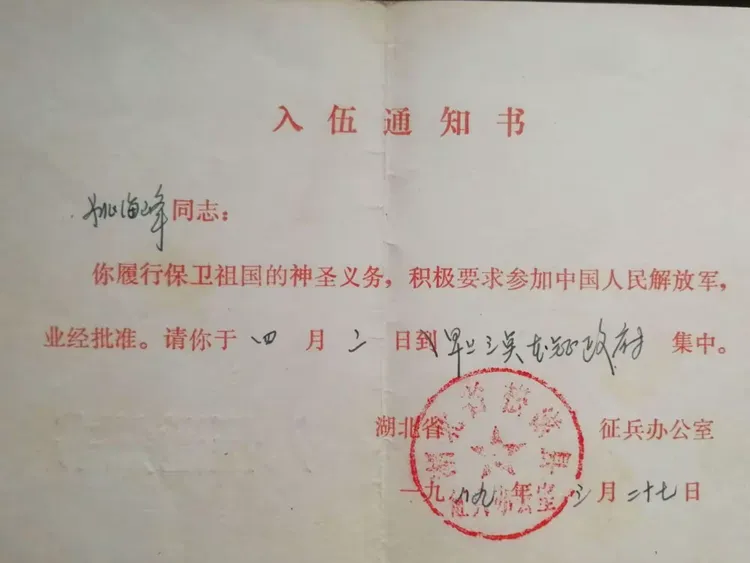 入伍通知书
姚海峰同志:
你履行保卫祖国的神圣义务,积极要求参加中国人民解放军,
业经批准。请你于四月二日到早上镇政府集中。
湖北省 征兵办公室
一九八九年三月二十七日